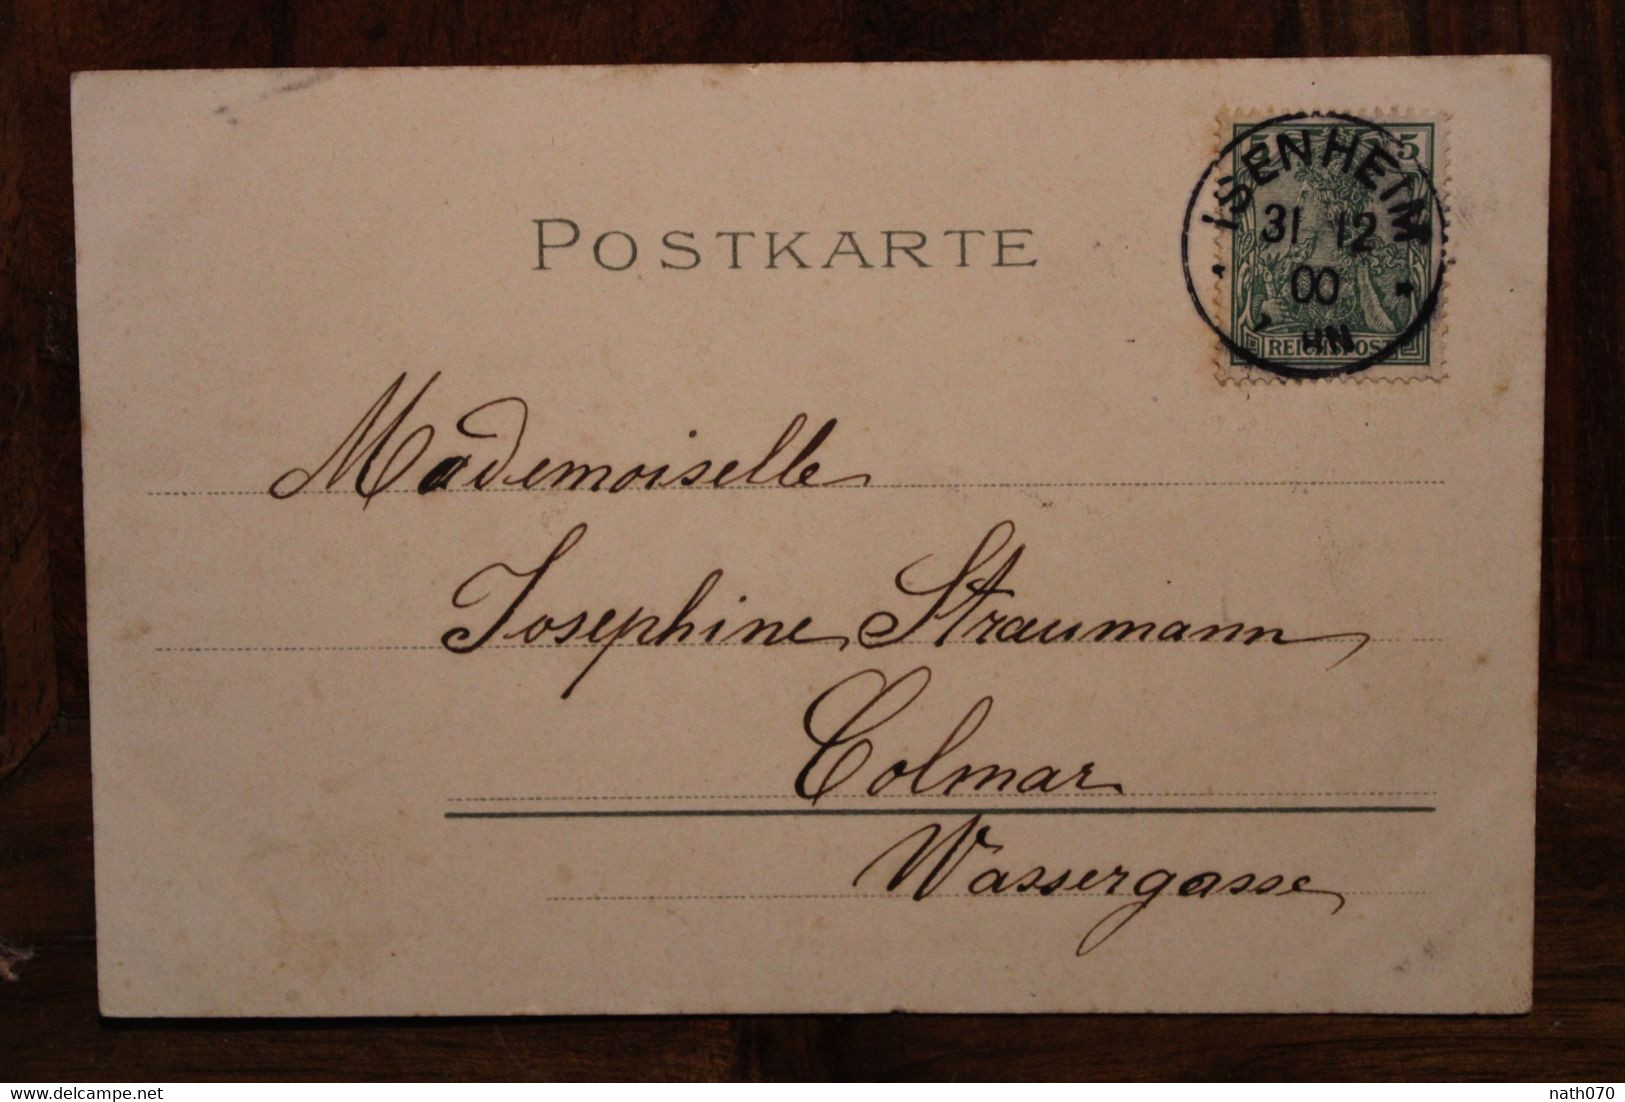 5 5
ISENHEIM
31 12
00
REICHSPOST
POSTKARTE
Mademoiselle
Josephine Straumann
Colmar
Wassergasse
delcampe.net
nath070